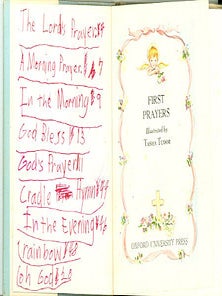 The Lord's Prayer
A Morning Prayer
In the Morning
God Bless
God's Prayer
Cradle Hymn
In the Evening
rainbow
oh God
FIRST
PRAYERS
Illustrated by
TASHA TUDOR
OXFORD UNIVERSITY PRESS